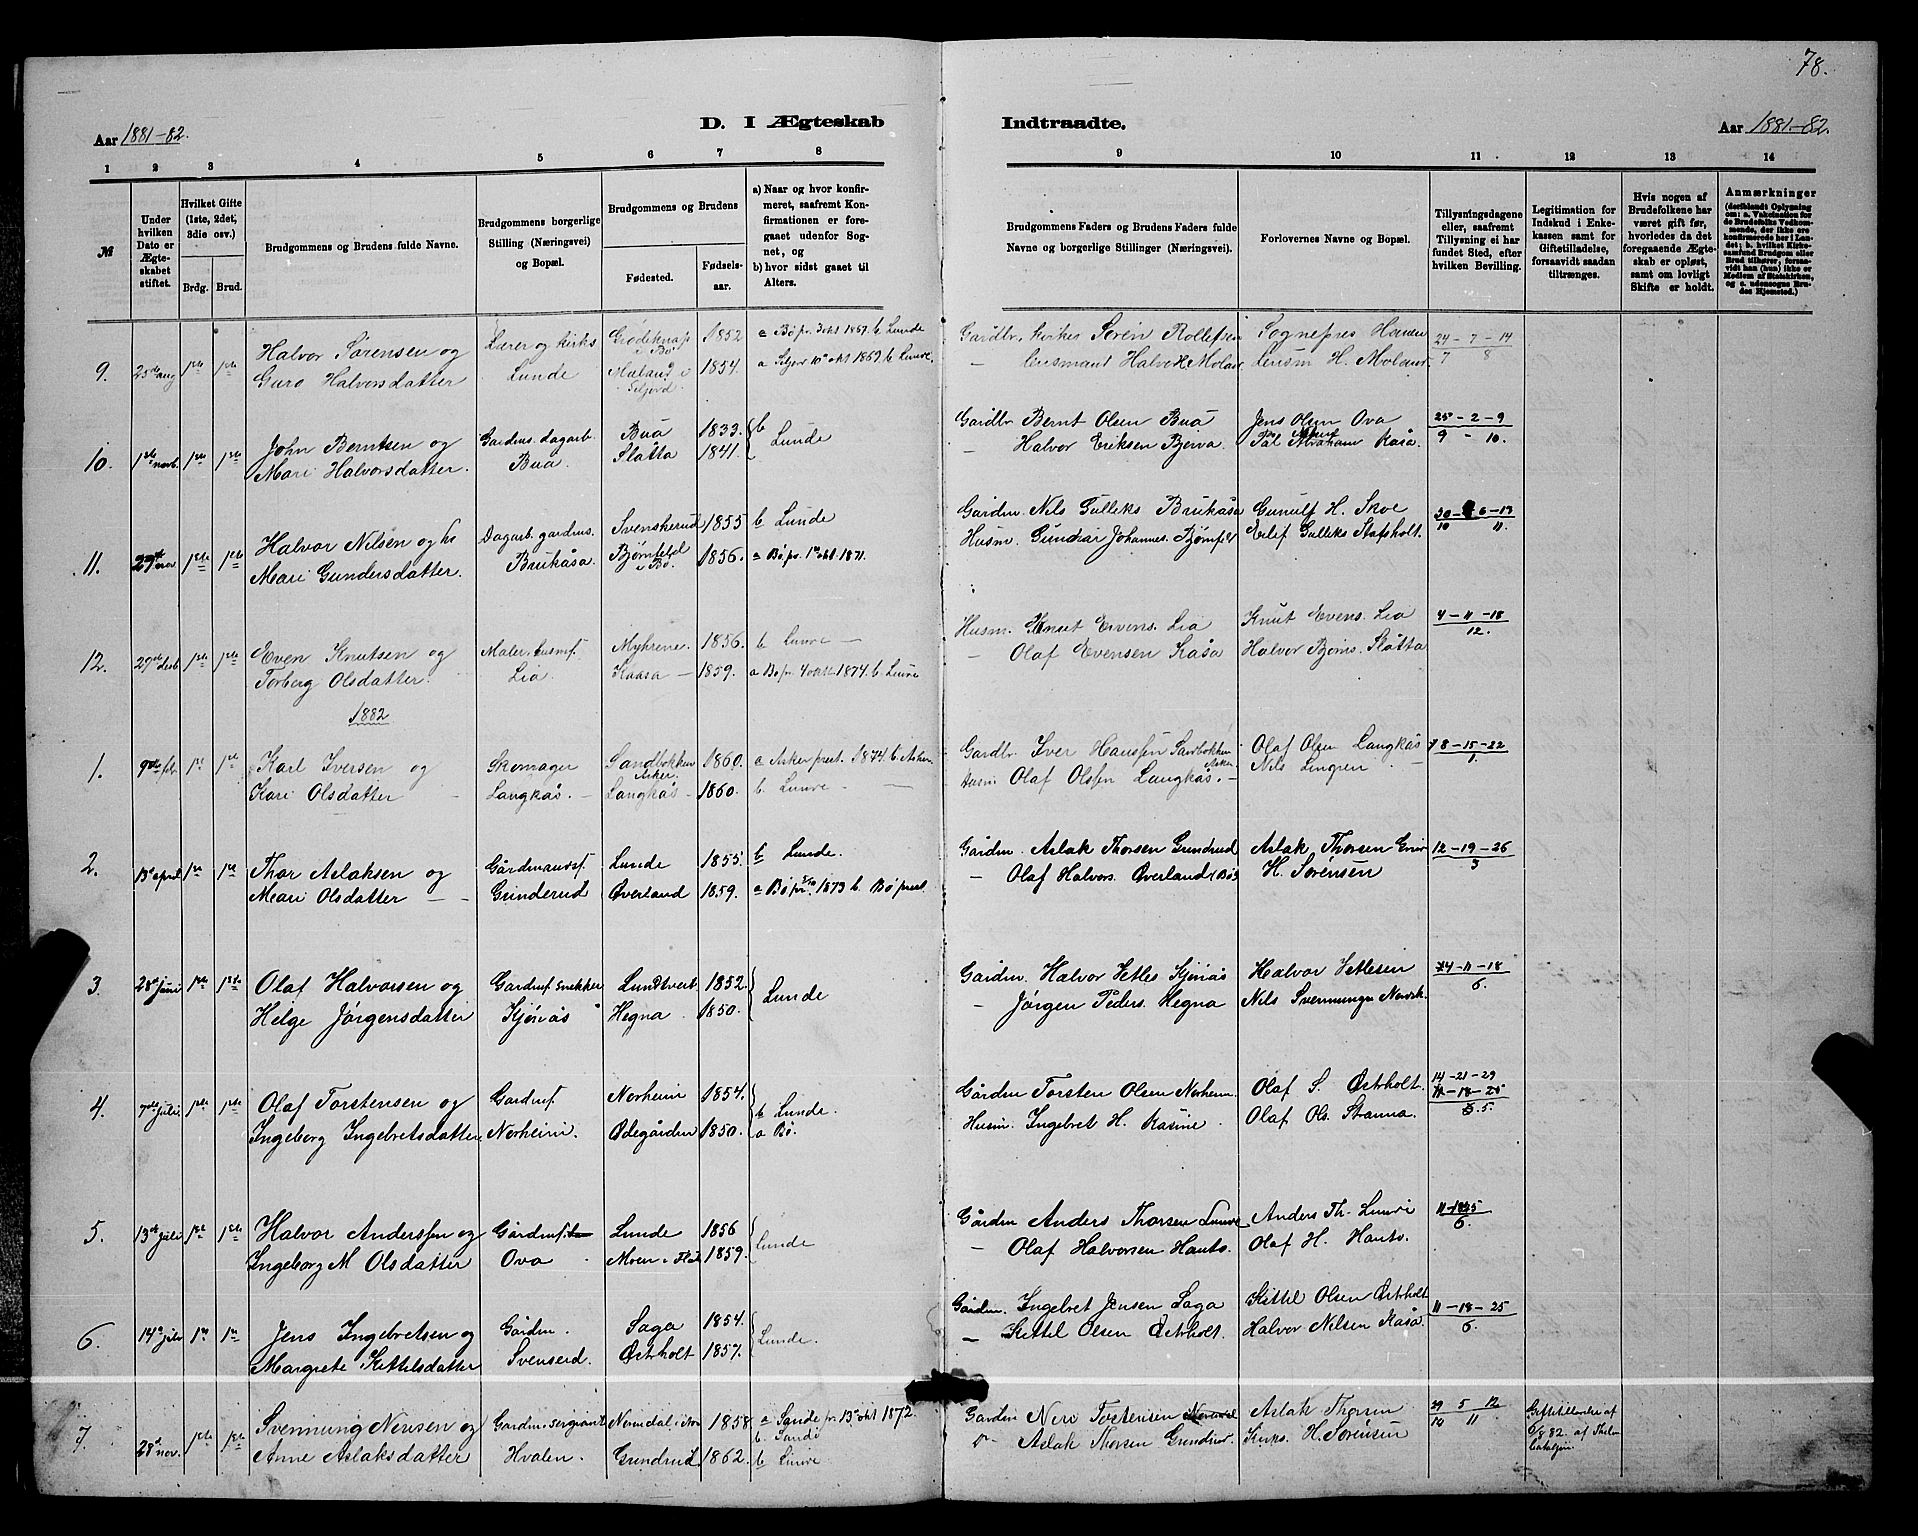 78.
Aar 1881-82.
D. I Ægteskab
Indtraadte.
Aar 1881-82.
1 2 3 4 5 6 7 8 9 10 11 12 13 14
№
Under hvilken Dato er Ægteskabet stiftet.
Hvilket Gifte (1ste, 2det, 3die osv.)
Brdg. Brud.
Brudgommens og Brudens fulde Navne.
Brudgommens borgerlige Stilling (Næringsvei) og Bopæl.
Brudgommens og Brudens
Fødested.
Fødselsaar.
a) Naar og hvor konfirmeret, saafremt Konfirmationen er foregaaet udenfor Sognet, og
b) hvor sidst gaaet til Alters.
Brudgommens Faders og Brudens Faders fulde Navne og borgerlige Stillinger (Næringsvei).
Forlovernes Navne og Bopæl.
Tillysningsdagene eller, saafremt Tillysning ei har fundet Sted, efter hvilken Bevilling.
Legitimation for Indskud i Enkekassen samt for Giftetilladelse, forsaavidt saadan tiltrænges.
Hvis nogen af Brudefolkene har været gift før, hvorledes da det foregaaende Ægteskab er opløst, samt om lovligt Skifte er holdt.
Anmærkninger
9. 25de aug 1ste 1ste Halvor Sørensen og Lærer og kirks 1852 a Bø pr. 3 okt 1867 b Lunde Gardbr. kirkes. Søren Rollefsen Sognepres 24-7-14
Guro Halvorsdatter Lunde Seljord 1854. a Seljor 10 okt 1869 b Lunde. Halvor H. Lensm H. 7 8
10. 1ste novb. 1ste 1ste John Berntsen og Gardens. dagarb. Bua 1833. b Lunde Gardbr Bernt Olsen Bua Jens Olsen Ova 25-2-9
Mari Halvorsdatter. Bua. Slåtta 1841. - Halvor Eriksen Bjerva Abraham Kåsa 9-10.
11. 29de nov 1ste 1ste Halvor Nilsen og Dagarb. gardens. Svenskerud 1855 b Lunde Gårdm. Nils Gulleks Brukåsa Gunulf H. Skoe 30-6-13
Mari Gundersdatter. Brukåsa. i Bø. 1856. a Bø pr. 1 okt 1871. Husm. Johannes. Gulleks Stafsholt. 10 11.
12. 29de desb 1ste 1ste Even Knutsen og Maler. husmf. Myhrene. 1856. b Lunde - Husm. Knut Evens. Lia Knut Evens. Lia 4-11-18
Torberg Olsdatter. Lia. Kaasa - 1859. a Bø pr. 4 okt 1874. b Lunde - Olaf Evensen Kåsa Halvor Bjørns. Slåtta 12.
1882
1. 9de febr. 1ste 1ste Karl Iversen og Skomager Sandbokken Asker. 1860. a Asker prest. 1874. b Asker Gardbr. Iver Hanssen Sandbokken Asker Olaf Olsen Langkås 8-15-22
Kari Olsdatter - Langkås. - Langkås - 1860. b Lunde - Husm Olaf Olssen Langkås. - Nils Lingren - 1.
2. 13de april 1ste 1ste Thor Aslaksen og Gårdmandsf. Lunde 1855 b Lunde. Gårdm Aslak Thorsen Grundrud Aslak Thorsen 12-19-26
Mari Olsdatter - - Grinderud Øverland 1859. a Bø pr. 1873 b. Bø prest. - Olaf Halvors. Øverland Bø H. Sørensen 3
3. 28de juni 1ste 1ste Olaf Halvorsen og Gardmf snekker Lundtvert 1852. Lunde Gårdm. Halvor Vetles Kjøriås Halvor Vetlesen 4-11-18
Helge Jørgensdatter Kjøriås Hegna. 1850. - Jørgen Peders. Hegna Nils 6.
4. 7de juli. 1ste 1ste Olaf Torstensen og Gardmf. Norheim 1854. b Lunde. Gårdm Torsten Olsen Norheim. Olaf S. Østrholt. 14-21-29 11-18-25
Ingeborg Ingebretsdatter. Norheim. Ødegården 1850. a Bø. Husm. Ingebret H. Kåsine. Olaf Ols. Stranna. 5.
5. 13de juli 1ste 1ste Halvor Anderssen og Gårdmf. Lunde 1856 Lunde Gårdm Anders Thorsen Lunde Anders Th. Lunde 11-18-25
Ingeborg M Olsdatter Ova Moen i 1859. - Olaf Halvorsen Hauto. Olaf H. Hauto. 6.
6. 14de juli 1ste 1ste Jens Ingebretsen og Gårdm. Saga 1854. Lunde. Gårdm. Ingebret Jensen Saga Kittel Olsen Østrholt 11-18-25
Margrete Kittelsdatter Svenserd. Østrholt 1857. - Kittel Olsen Østrholt. Halvor Nilsen Kåsa. 6.
7. 28de nov. 1ste 1ste Svennung Nersen og Gardm. sergeant 1858. a Sande pr. 13 okt 1872. b. Sande Gårdm Neri Tostensen Aslak Thorsen 29 5 12 Giftetilladelse af 82. af
Anne Aslaksdatter Hvalen. Grundrud 1862. b Lunde - Aslak Thorsen Grundrud. Kirks. H. Sørensen 10 11